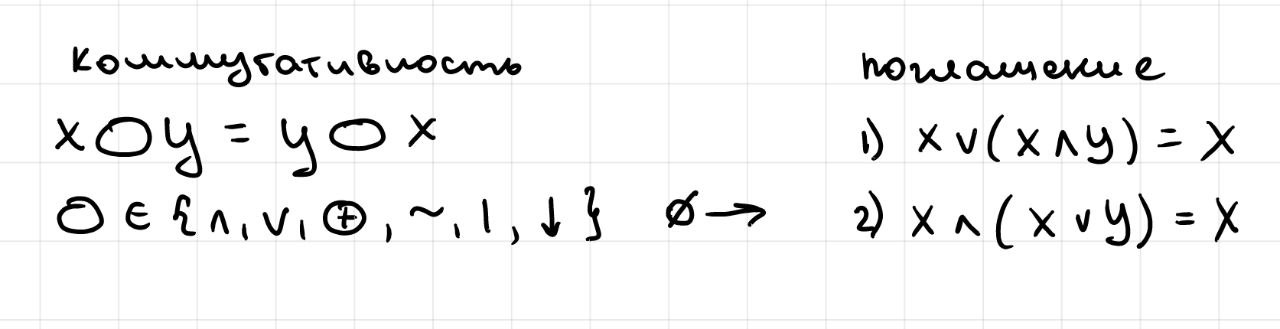 коммутативность
x O y = y O x
O ∈ {∧, ∨, ⊕, ~, |, ↓} Ø→
поглащение
1) x ∨ (x ∧ y) = x
2) x ∧ (x ∨ y) = x